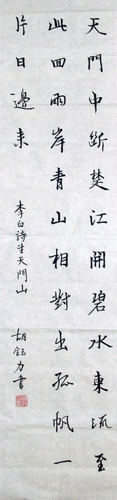 天門中斷楚江開碧水東流至
此回兩岸青山相對出孤帆一
片日邊來
李白詩望天門山
胡鈺力書